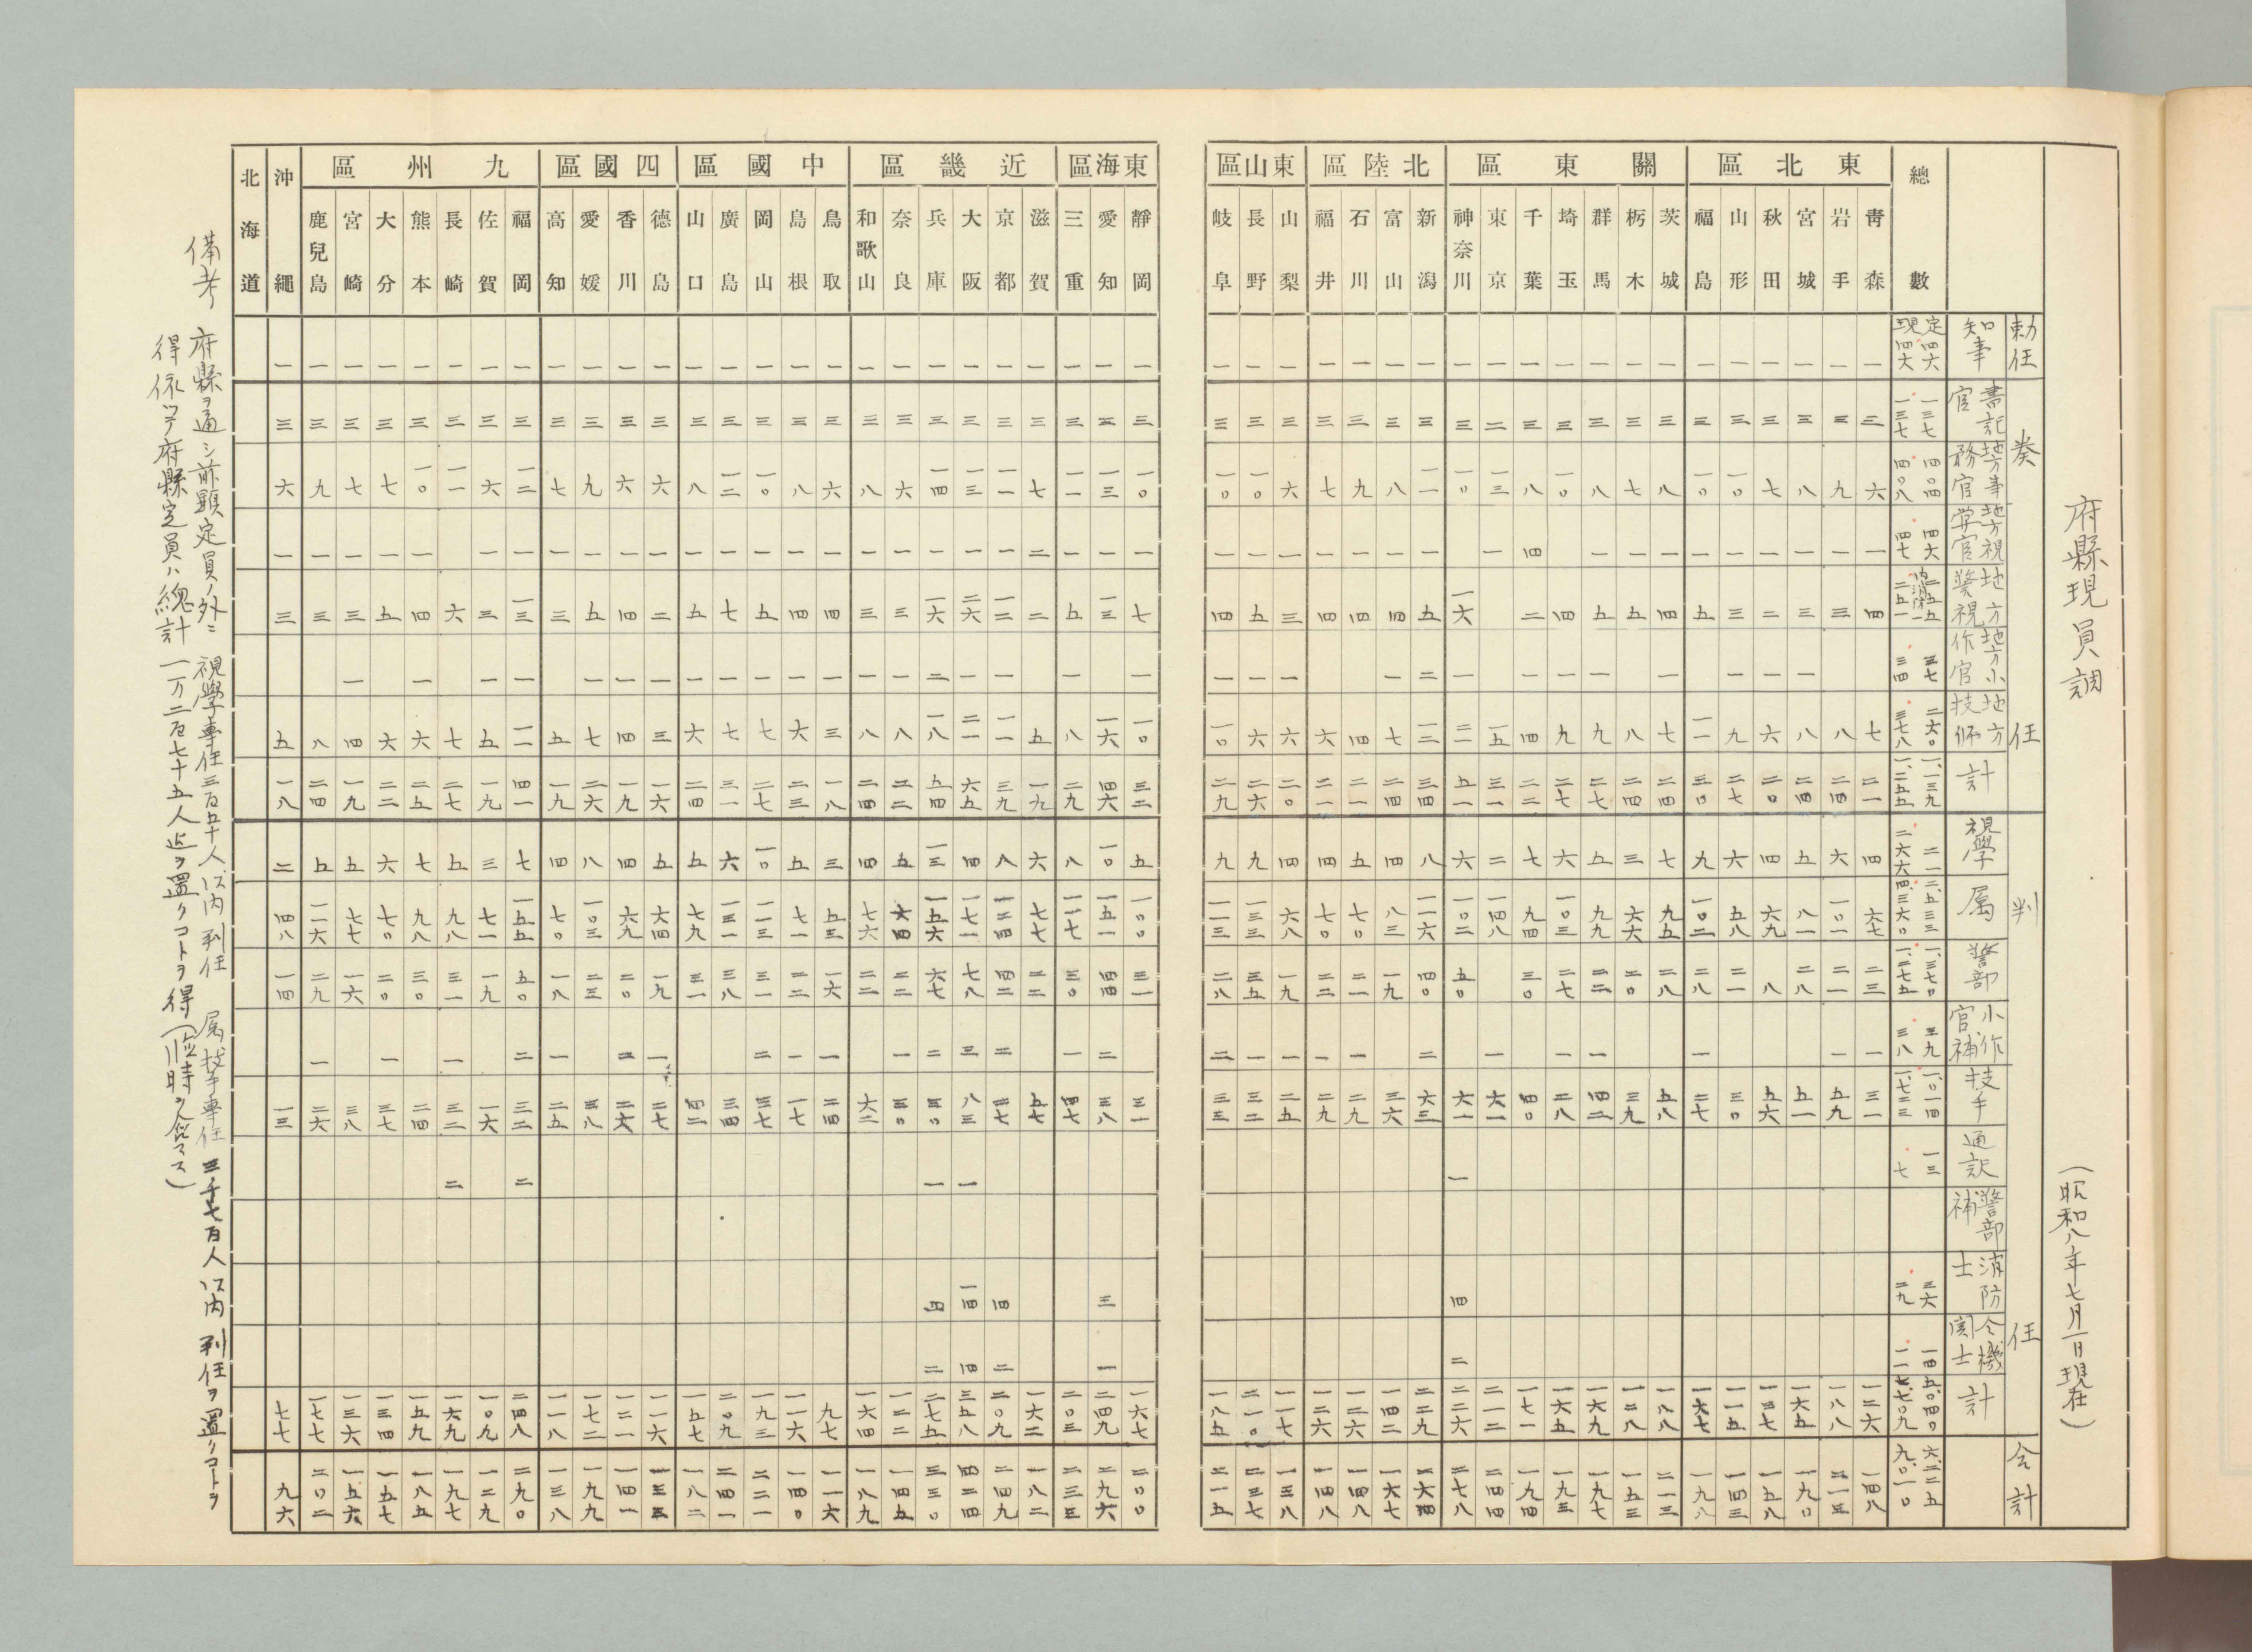 府縣現員調 (昭和八年七月一日現在)
勅任 奏任 判任 合計
知事 書記官 地方事務官 地方視学官 地方警視 地方小作官 地方技師 計 視學 属 警部 小作官補 技手 通訳 警部補 消防士 仝機関士 計
總數
定四六 一三七 四〇四 四六 二五五 三七 二六〇 一、一三九 二一 二、五三三 一、三七〇 三九 一、〇一四 一三 三六 一四 五、〇四〇 六、二二五
現四六 一三七 四〇八 四七 二五一 三四 三七八 一、二五五 二六六 四、三六〇 一、二七五 三八 一、七三三 七 二九 一一 七、七〇九 九、〇一〇
東北區
青森 一 三 六 一 四 七 二一 四 六七 二三 一 三一 一二六 一四八
岩手 一 三 九 一 三 八 二四 六 一〇一 二一 一 五九 一八八 二一三
宮城 一 三 八 一 三 一 八 二四 五 八一 二八 五一 一六五 一九〇
秋田 一 三 七 一 二 一 六 二〇 四 六九 八 五六 一三七 一五八
山形 一 三 一〇 一 三 一 九 二七 六 五八 二一 三〇 一一五 一四三
福島 一 三 一〇 一 五 一一 三〇 九 一〇二 二八 一 二七 一六七 一九八
關東區
茨城 一 三 八 一 四 一 七 二四 七 九五 二八 五八 一八八 二一三
栃木 一 三 七 一 五 八 二四 三 六六 二〇 三九 一二八 一五三
群馬 一 三 八 一 五 一 九 二七 五 九九 二二 一 四二 一六九 一九七
埼玉 一 三 一〇 四 一 九 二七 六 一〇三 二七 一 二八 一六五 一九三
千葉 一 三 八 四 二 一 四 二二 七 九四 三〇 四〇 一七一 一九四
東京 一 二 一三 一 一五 三一 二 一四八 一 六一 二一二 二四四
神奈川 一 三 一〇 一六 一 二一 五一 六 一〇二 五〇 六一 一 四 二 二二六 二七八
北陸區
新潟 一 三 一一 一 五 二 一二 三四 八 一一六 四〇 二 六三 二二九 二六四
富山 一 三 八 一 四 一 七 二四 四 八三 一九 三六 一四二 一六七
石川 一 三 九 一 四 四 二一 五 七〇 二一 一 二九 一二六 一四八
福井 一 三 七 一 四 六 二一 四 七〇 二二 一 二九 一二六 一四八
東山區
山梨 一 三 六 一 三 一 六 二〇 四 六八 一九 一 二五 一一七 一三八
長野 一 三 一〇 一 五 一 六 二六 九 一三三 三五 一 三二 二一〇 二三七
岐阜 一 三 一〇 一 四 一 一〇 二九 九 一一三 二八 二 三三 一八五 二一五
東海區
靜岡 一 三 一〇 一 七 一 一〇 三二 五 一〇〇 三一 三一 一六七 二〇〇
愛知 一 三 一三 一 一三 一六 四六 一〇 一五一 四四 二 三八 三 一 二四九 二九六
三重 一 三 一一 一 五 一 八 二九 八 一一七 三〇 一 四七 二〇三 二三三
近畿區
滋賀 一 三 七 二 二 五 一九 六 七七 二二 五七 一六二 一八二
京都 一 三 一一 一 一二 一 一一 三九 八 一二四 四二 二 二七 四 二 二〇九 二四九
大阪 一 三 一三 一 二六 一 二一 六五 四 一七一 七八 三 八三 一 一四 四 三五八 四二四
兵庫 一 三 一四 一 一六 二 一八 五四 一三 一五六 六七 二 三〇 一 四 二 二七五 三三〇
奈良 一 三 六 一 三 一 八 二二 五 六四 二二 一 三〇 一二二 一四五
和歌山 一 三 八 一 三 一 八 二四 四 七六 二二 六二 一六四 一八九
中國區
鳥取 一 三 六 一 四 一 三 一八 三 五三 一六 一 二四 九七 一一六
島根 一 三 八 一 四 一 六 二三 五 七一 二二 一 一七 一一六 一四〇
岡山 一 三 一〇 一 五 一 七 二七 一〇 一一三 三一 二 三七 一九三 二二一
廣島 一 三 一二 一 七 一 七 三一 六 一三一 三八 三四 二〇九 二四一
山口 一 三 八 一 五 一 六 二四 五 七九 三一 四二 一五七 一八二
四國區
德島 一 三 六 一 二 一 三 一六 五 六四 一九 一 二七 一一六 一三三
香川 一 三 六 一 四 一 四 一九 四 六九 二〇 二 二六 一二一 一四一
愛媛 一 三 九 一 五 一 七 二六 八 一〇三 二三 三八 一七二 一九九
高知 一 三 七 一 三 一 五 一九 四 七〇 一八 一 二五 一一八 一三八
九州區
福岡 一 三 一二 一 一三 一 一一 四一 七 一五五 五〇 二 三二 二 二四八 二九〇
佐賀 一 三 六 一 三 一 五 一九 三 七一 一九 一六 一〇九 一二九
長崎 一 三 一一 六 七 二七 五 九八 三一 一 三二 二 一六九 一九七
熊本 一 三 一〇 一 四 一 六 二五 七 九八 三〇 二四 一五九 一八五
大分 一 三 七 一 五 六 二二 六 七〇 二〇 一 三七 一三四 一五七
宮崎 一 三 七 一 三 一 四 一九 五 七七 一六 三八 一三六 一五六
鹿兒島 一 三 九 一 三 八 二四 五 一一六 二九 一 二六 一七七 二〇二
沖繩 一 三 六 一 三 五 一八 二 四八 一四 一三 七七 九六
北海道
備考
府縣ヲ通シ前顕定員ノ外ニ 視學專任三百五十人以内判任 属技手專任三千七百人以内 判任ヲ置クコトヲ
得依ツテ府縣定員ハ總計 一万二百七十五人迄ヲ置クコトヲ得(臨時ヲ含マス)